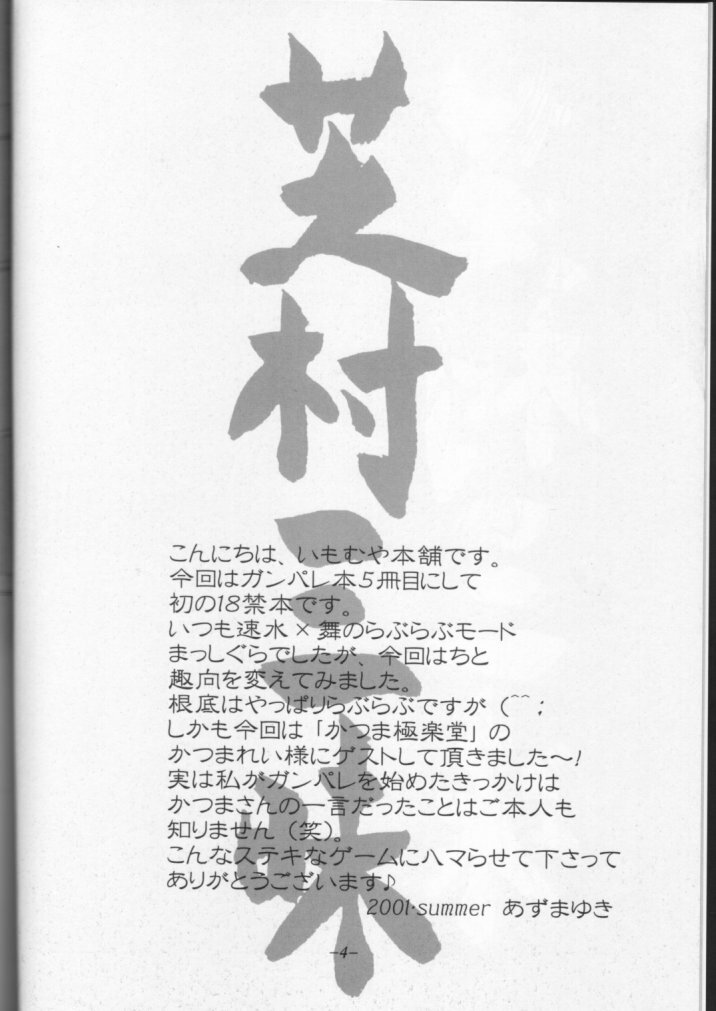 芝村三昧
こんにちは、いもむや本舗です。
今回はガンパレ本5冊目にして
初の18禁本です。
いつも速水×舞のらぶらぶモード
まっしぐらでしたが、今回はちと
趣向を変えてみました。
根底はやっぱりらぶらぶですが(^^;
しかも今回は「かつま極楽堂」の
かつまれい様にゲストして頂きました～!
実は私がガンパレを始めたきっかけは
かつまさんの一言だったことはご本人も
知りません(笑)。
こんなステキなゲームにハマらせて下さって
ありがとうございます♪
2001・summer あずまゆき
-4-